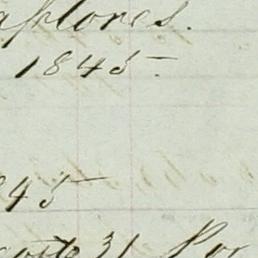 aflores.
1845.
845
agosto 31 Por